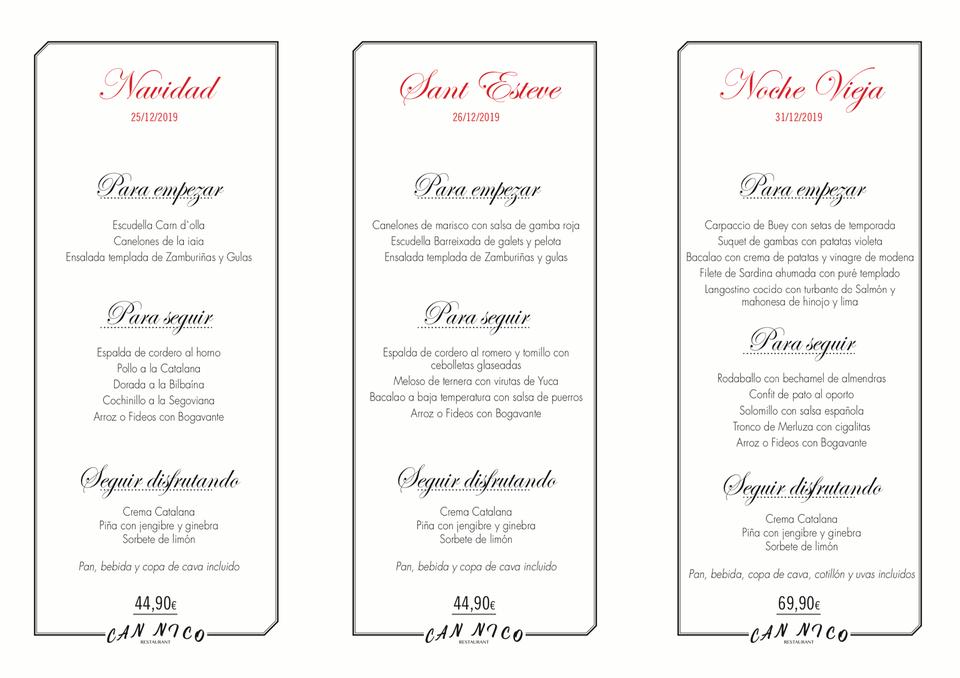 Navidad
25/12/2019
Para empezar
Escudella Carn d'olla
Canelones de la iaia
Ensalada templada de Zamburiñas y Gulas
Para seguir
Espalda de cordero al horno
Pollo a la Catalana
Dorada a la Bilbaína
Cochinillo a la Segoviana
Arroz o Fideos con Bogavante
Seguir disfrutando
Crema Catalana
Piña con jengibre y ginebra
Sorbete de limón
Pan, bebida y copa de cava incluido
44,90€
CAN NICO
RESTAURANT
Sant Esteve
26/12/2019
Para empezar
Canelones de marisco con salsa de gamba roja
Escudella Barreixada de galets y pelota
Ensalada templada de Zamburiñas y gulas
Para seguir
Espalda de cordero al romero y tomillo con
cebolletas glaseadas
Meloso de ternera con virutas de Yuca
Bacalao a baja temperatura con salsa de puerros
Arroz o Fideos con Bogavante
Seguir disfrutando
Crema Catalana
Piña con jengibre y ginebra
Sorbete de limón
Pan, bebida y copa de cava incluido
44,90€
CAN NICO
RESTAURANT
Noche Vieja
31/12/2019
Para empezar
Carpaccio de Buey con setas de temporada
Suquet de gambas con patatas violeta
Bacalao con crema de patatas y vinagre de modena
Filete de Sardina ahumada con puré templado
Langostino cocido con turbante de Salmón y
mahonesa de hinojo y lima
Para seguir
Rodaballo con bechamel de almendras
Confit de pato al oporto
Solomillo con salsa española
Tronco de Merluza con cigalitas
Arroz o Fideos con Bogavante
Seguir disfrutando
Crema Catalana
Piña con jengibre y ginebra
Sorbete de limón
Pan, bebida, copa de cava, cotillón y uvas incluidos
69,90€
CAN NICO
RESTAURANT